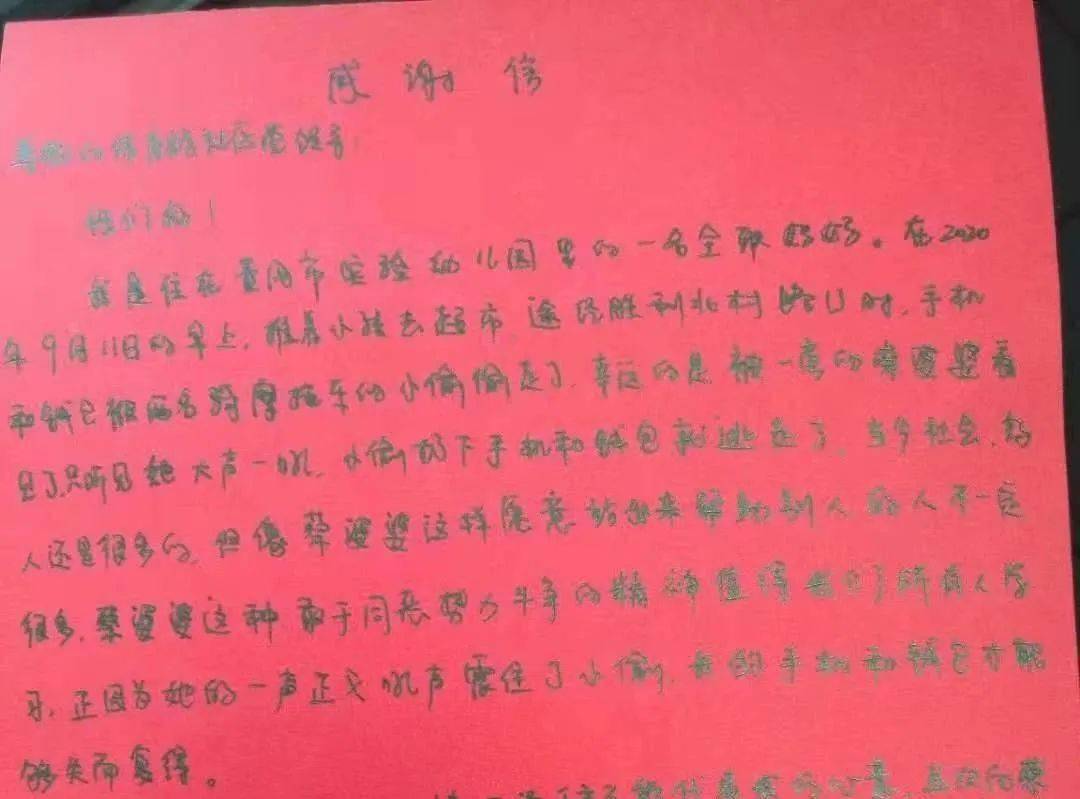 感谢信
尊敬的 社区党组织:
你们好!
我是住在黄冈市实验幼儿园里的一名全职妈妈。在2020
年9月11日的早上,推着小孩去超市 途径胜利北村路口时,手机
和钱包被两名骑摩托车的小偷偷走了,幸运的是被一旁的蔡婆婆看
见了,只听见她大声一吼,小偷扔下手机和钱包就逃走了,当今社会,好
人还是很多的,但像蔡婆婆这样愿意站出来帮助别人的人不一定
很多,蔡婆婆这种敢于同恶势力斗争的精神值得我们所有人学
习,正因为她的一声正义吼声震住了小偷,我的手机和钱包才能
够失而复得。
的心意,再次向蔡